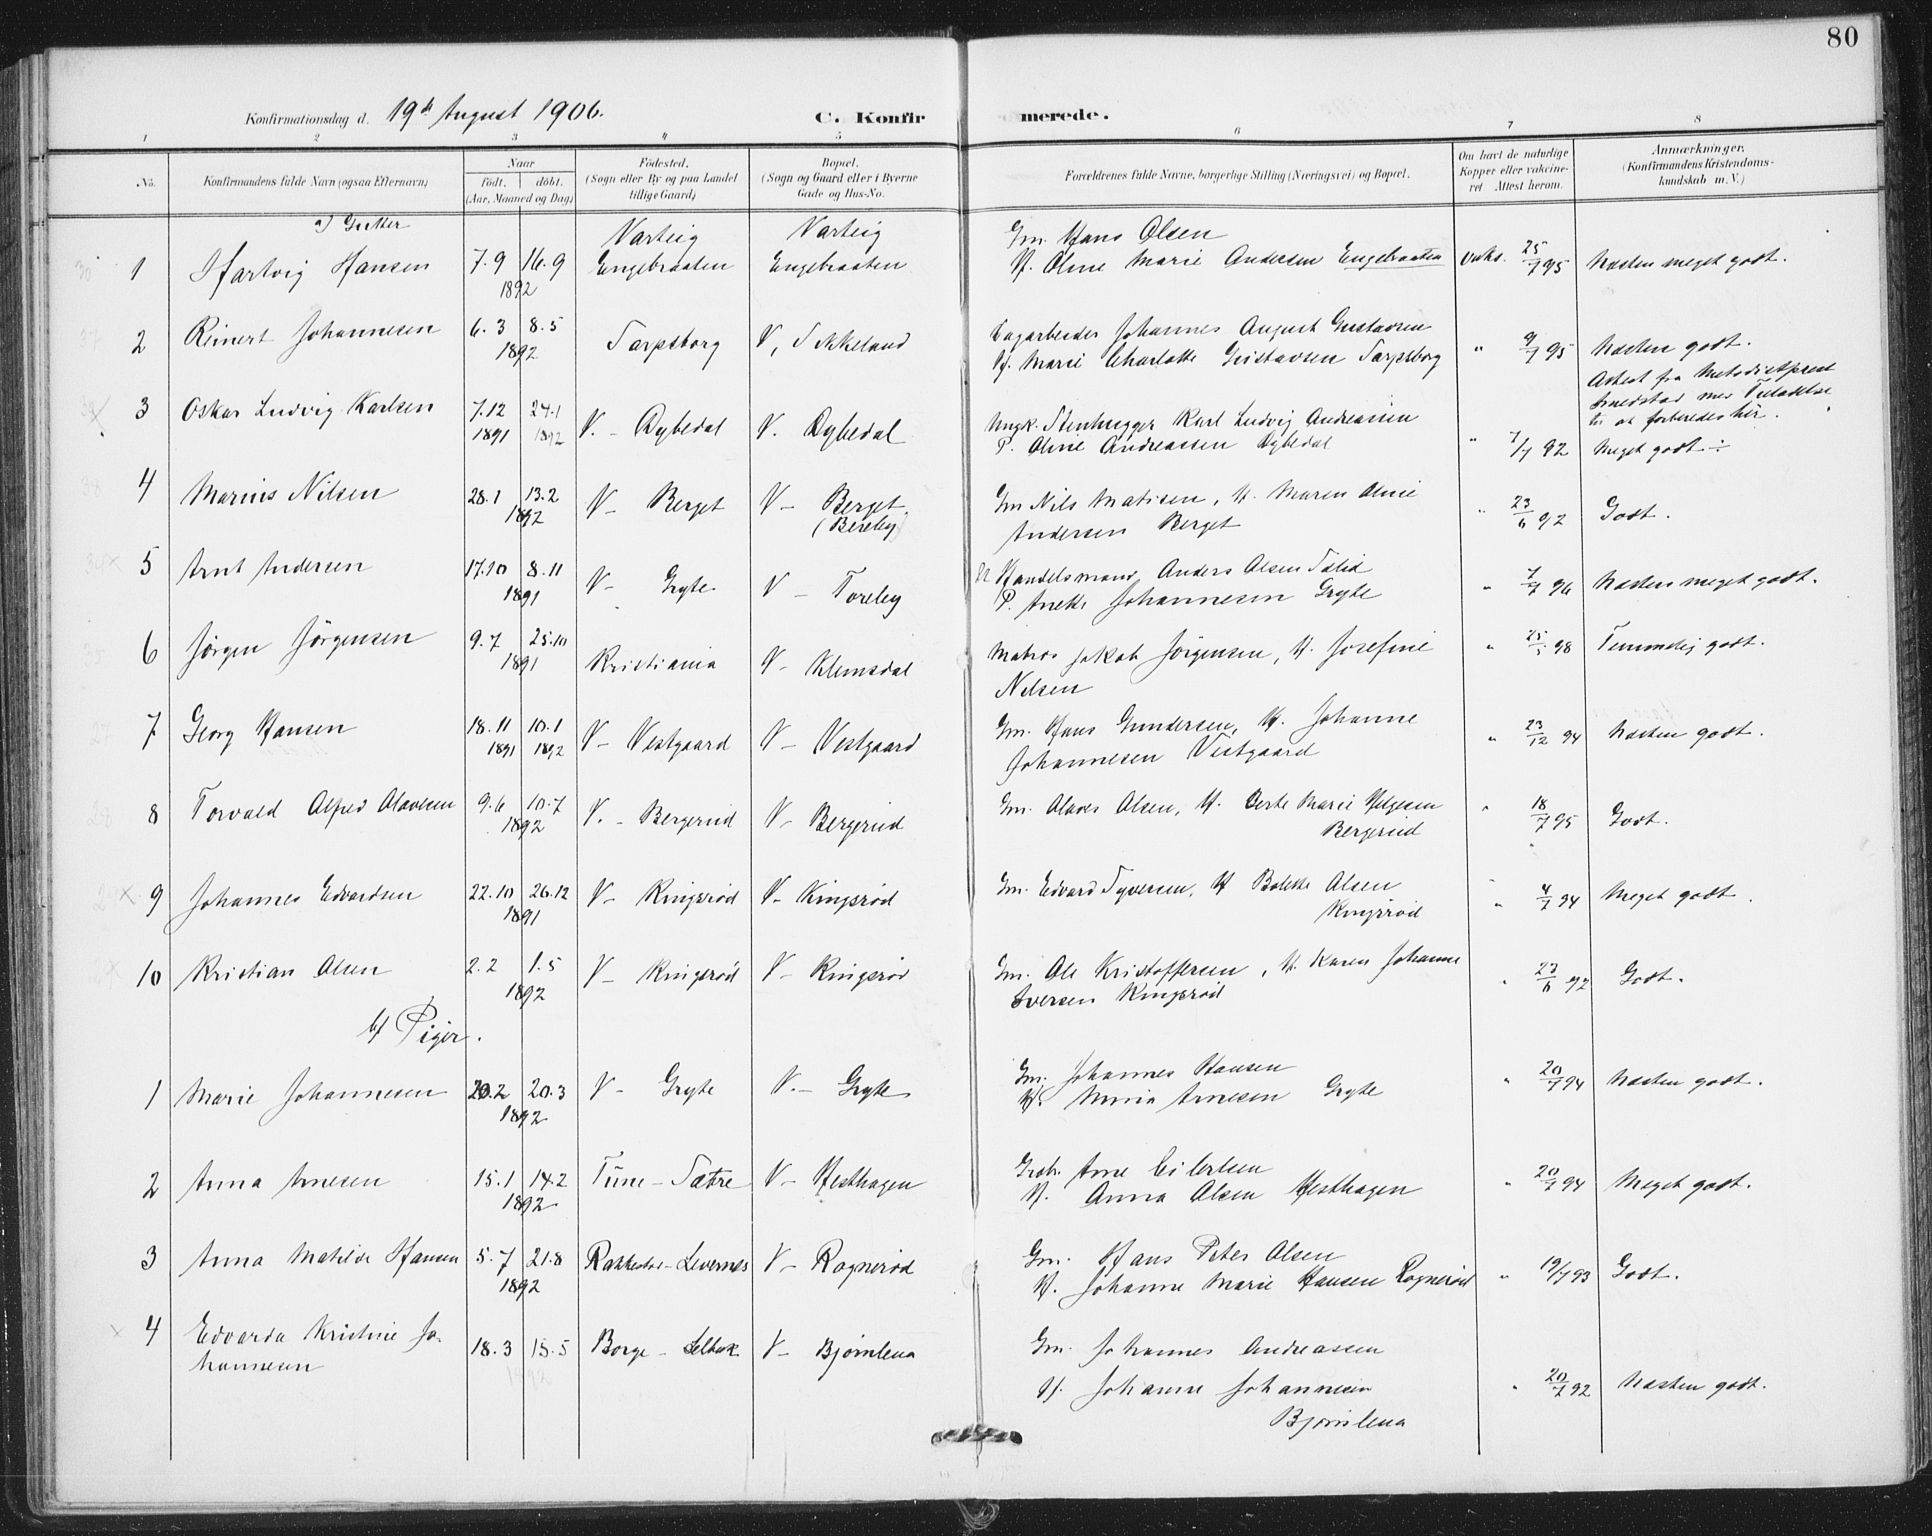 80
Konfirmationsdag d. 19de August 1906.
C. Konfirmerede.
1 2 3 4 5 6 7 8
No. Konfirmandens fulde Navn (ogsaa Efternavn)
Naar födt. döbt. (Aar, Maaned og Dag)
Födested. (Sogn eller By og paa Landet tillige Gaard)
Bopæl. (Sogn og Gaard eller i Byerne Gade og Hus-No.
Forældrenes fulde Navne, borgerlige Stilling (Næringsvei) og Bopæl.
Om havt de naturlige Kopper eller vakcineret. Attest herom.
Anmærkninger. (Konfirmandens Kristendomskundskab m. V.)
a) Gutter
Varteig Varteig Gm. Hans Olsen
1 Hartvig Hansen 7.9 16.9 Engebraaten Engebraaten H. Oline Marie Andersen Engebraaten vaks. 25/7 95 Næsten meget godt.
1892
2 Reinert Johannesen 6.3 8.5 Sarpsborg V, Sikkeland Johannes August Gustavsen
1892 H. Marie Charlotte Gustavsen Sarpsborg " 9/7 95 Næsten godt.
Attest fra Metodistprest
med Tilladelse
til at forberedes her.
3 Oskar Ludvig Karlsen 7.12 24.1 V. - Dybedal V. Dybedal Ungk. Stenhugger Karl Ludvig Andreassen
1891 1892 P. Oline Andreassen Dybedal " 7/7 92 Meget godt ÷
4 Marius Nilsen 28.1 13.2 V - Berget V - Berget Gm Nils Matisen, H. Maren Oline
1892 (Bereby) Andersen Berget " 23/6 92 Godt.
5 Arnt Andersen 17.10 8.11 V - Gryte V - Toreby Handelsmand Anders Olsen
1891 P. Anette Johannesen Gryte " 7/7 96 Næsten meget godt.
6 Jørgen Jörgensen 9.7 25.10 Kristiania V - Klemsdal Matros Jakob Jörgensen, H. Josefine
1891 Nilsen " 98 Temmelig godt.
7 Georg Hansen 18.11 10.1 V - Vestgaard V - Vestgaard Gm. Hans Gundersen, H. Johanne
1891 1892 Johannesen Vestgaard " 23/12 94 Næsten godt.
8 Torvald Alfred Olavesen 9.6 10.7 V. - Bergerud V - Bergerud Gm. Olaves Olsen, H. Berte Marie Helgesen
1892 Bergerud " 18/7 95 Godt.
9 Johannes Edvardsen 22.10 26.12 V - Ringsrød V - Ringsrød Gm. Edvard Syversen, H Bolette Olsen
1891 Ringsröd " 4/7 94 Meget godt.
10 Kristian Olsen 2.2 1.5 V - Ringsrød V - Ringsrød Gm. Ole Kristoffersen, H. Karen Johanne
1892 Iversen Ringsröd " 23/6 92 Godt.
b) Piger.
1 Marie Johannesen 20.2 20.3 V - Gryte V. - Gryte Gm. Johannes Hansen
1892 H. Minia Arnesen Gryte " 20/7 94 Næsten godt.
2 Anna Arnesen 15.1 14.2 Tune - Sætre V - Hesthagen Arne Eilertsen
1892 H. Anna Olsen Hesthagen " 20/7 94 Meget godt.
3 Anna Matilde Hansen 5.7 21.8 Rakkestad - Levernes V - Rognerød Gm. Hans Peter Olsen
1892 H. Johanne Marie Hansen Rognerød " 19/7 93 Godt.
4 Edvarda Kristine Jo- 18.3 15.5 Borge - V - Bjørnlena Gm. Johannes Andreassen
hannesen 1892 H. Johanne Johannesen " 20/7 92 Næsten godt.
Bjørnlena